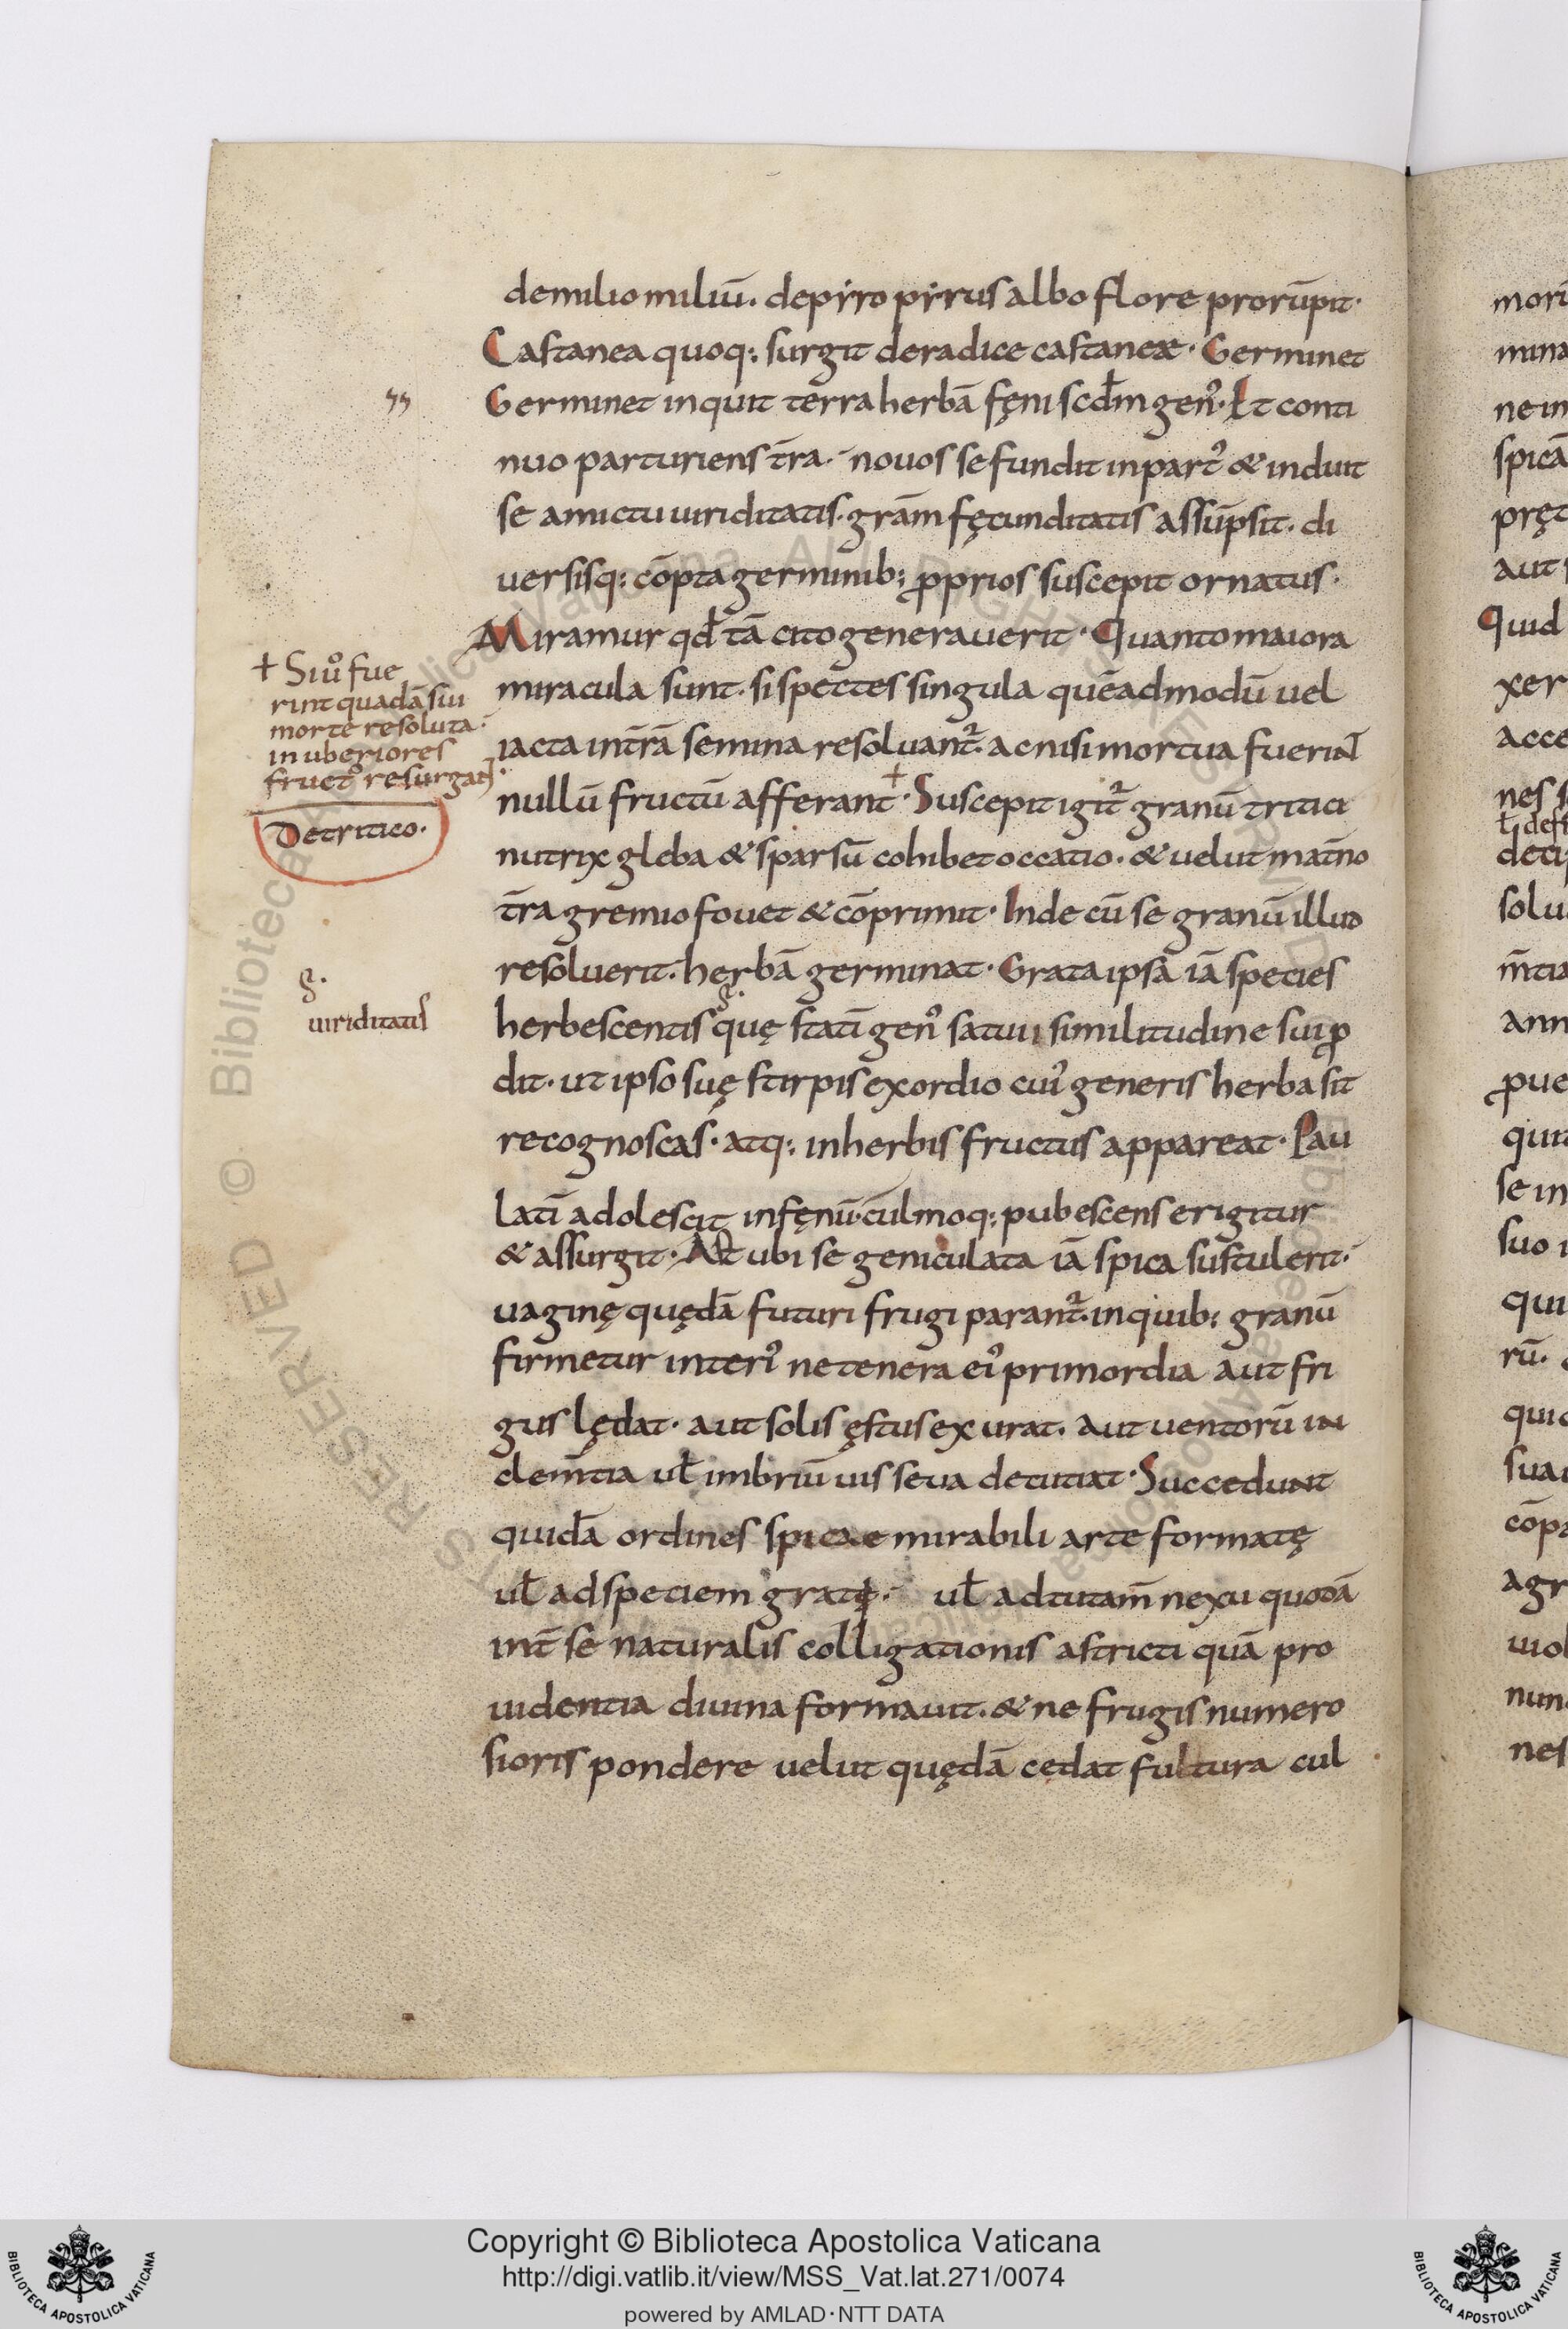 demilio miliū. depẏro pẏrus albo flore prorūpit·
Castanea quoq; surgit deradice castaneae· Germinet
Germinet inquit terra herbā fęni scdm̄ gen᾽· Et conti
nuo parturiens t̄ra· novos se fundit inpart᾽ & induit
se amictu uiriditatis· grām fęcunditatis assūpsit· di
uersisq; cōpta germinib; ꝓprios suscepit ornatus·
Miramur qđ tā cito generauerit· Quanto maiora
miracula sunt· si spectes singula quēadmodū uel
iacta int̄rā semina resoluant᾽· ac nisi mortua fuerint
nullū fructū afferant +· Suscepit igit᾽ granū tritici
nutrix gleba & sparsū cohibet occatio· & uelut mat̄no
t̄ra gremio fouet & cōprimit· Inde cū se granū illud
resoluerit· herbā germinat· Grata ipsa iā species
herbescentis quę statī gen᾽ satiui similitudine sui ꝓ
dit· ut ipso suę stirpis exordio cui᾽ generis herba sit
recognoscas· atq; inherbis fructus appareat· Pau
latī adolescit infęnū· culmoq; pubescens erigitur
& assurgit· At ubi se geniculata iā spica sustulerit·
uaginę quędā futuri frugi parant᾽· inquib; granū
firmetur interi᾽ ne tenera ei᾽ primordia aut fri
gus lędat· aut solis ęstus exurat· aut uentorū in
clem̄tia uł imbriū uis seua decutiat· Succedunt
quidā ordines spicae mirabili arte formatę
uł adspeciem gratę· uł adtutam̄ nexu quodā
int̄ se naturalis colligationis astricti quā pro
uidentia diuina formauit· & ne frugis numero
sioris pondere uelut quędā cedat fultura cul
+ Siu᾽ fue
rint quadā sui
morte resoluta·
in uberiores
fruct᾽ resurgant
Detritico·
uiriditatis
Copyright © Biblioteca Apostolica Vaticana
http://digi.vatlib.it/view/MSS_Vat.lat.271/0074
powered by AMLAD·NTT DATA
BIBLIOTECA APOSTOLICA VATICANA
BIBLIOTECA APOSTOLICA VATICANA